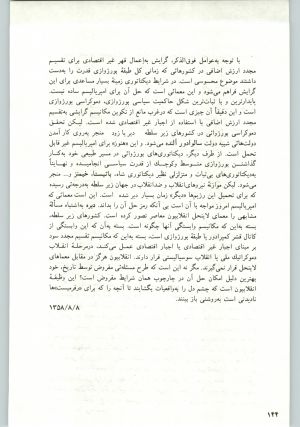 با توجه به‌عوامل فوق‌الذکر، گرایش به‌اعمال قهر غیر اقتصادی برای تقسیم
مجدد ارزش اضافی در کشورهائی که زمانی کل طبقهٔ بورژوازی قدرت را به‌دست
داشتند موضوع محسوسی است. در شرایط دیکتاتوری زمینهٔ بسیار مساعدی برای این
گرایش فراهم می‌شود و این معمائی است که حل آن برای امپریالیسم ساده نیست.
پایدارترین و با ثبات‌ترین شکل حاکمیت سیاسی بورژوازی، دموکراسی بورژوازی
است و این دقیقاً آن چیزی است که درعرب مانع از تکوین مکانیسم گرایشی به‌تقسیم
مجدد ارزش اضافی با استفاده از اجبار غیر اقتصادی شده است. لیکن تحقق
دموکراسی بورژوائی در کشورهای زیر سلطه دیر یا زود منجر به‌روی کار آمدن
دولت‌هائی شبیه دولت سالوادور آلنده می‌شود. و این همه‌وزه برای امپریالیسم غیر قابل
تحمل است. از طرف دیگر، دیکتاتوری‌های بورژوائی در مسیر طبیعی خود به‌کنار
گذاشتن بورژوازی متوسط وکوچک از قدرت سیاسی انجامیده و نهایتاً
به‌دیکتاتوری‌های بی‌ثبات و متزلزلی نظیر دیکتاتوری شاه، باتیستا، خیمنز و... منجر
می‌شود. لیکن موازنهٔ نیروهای انقلاب و ضدانقلاب در جهان زیر سلطه به‌درجه‌ئی رسیده
که برای تحمیل این رژیم‌ها دیگر زمان بسیار دیر شده است. این معمائی است که
امپریالیسم امروز مواجه با آن است بی آنکه رمز حل آن را بداند.
مشابهی را معمای لاینحل انقلابیون معاصر تصور کرده است. کشورهای زیر سلطه،
بسته به‌این که مکانیسم وابستگی آنها چگونه است، بسته به‌آن که این وابستگی از
کانال قشر کمپرادور یا طبقهٔ بورژوازی است، بسته به‌این که مکانیسم تقسیم مجدد سود
بر مبنای اجبار غیر اقتصادی یا اجبار اقتصادی عمل می‌کند، درمرحلهٔ انقلاب
دموکراتیک ملی یا انقلاب سوسیالیستی قرار دارند. انقلابیون هرگز در مقابل معماهای
لاینحل قرار نمی‌گیرند. مگر نه این است که طرح مسئله‌ئی مفروض توسط تاریخ، خود
بهترین دلیل امکان حل آن در چارچوب همان شرایط مفروض است؟ این وظیفهٔ
انقلابیون است که چشم دل را به‌واقعیات بگشایند تا آنچه را که برای دگم‌پرست‌ها
نادیدنی است به‌روشنی باز بینند.
۱۳۵۸/۸/۸
۱۴۴